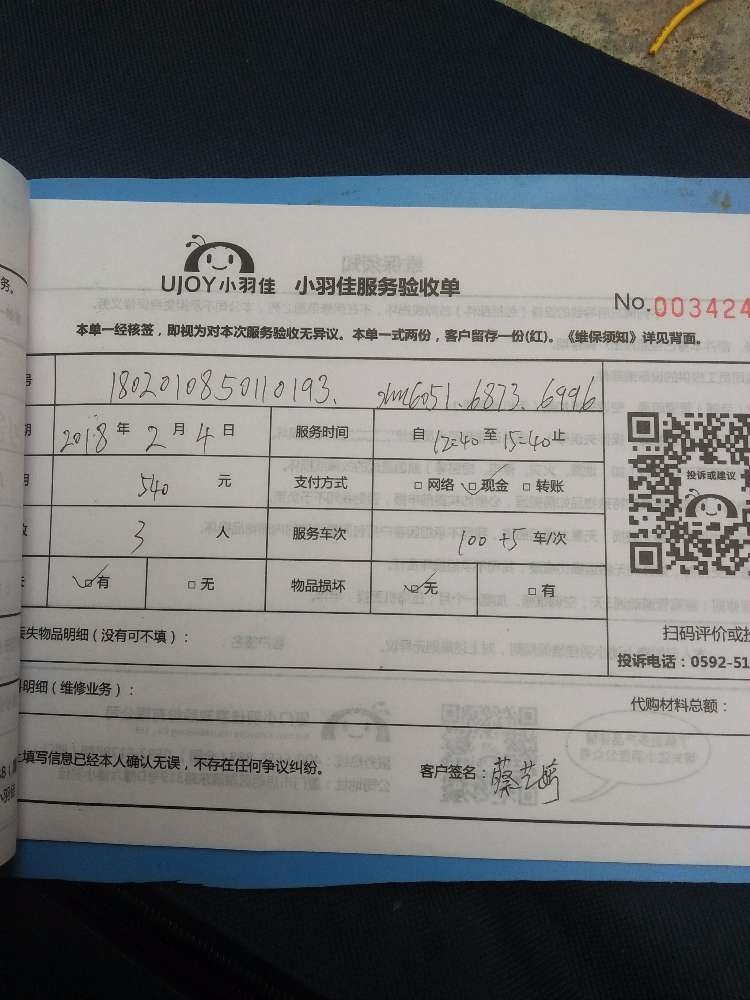 UJOY小羽佳 小羽佳服务验收单
No.003424
本单一经核签，即视为对本次服务验收无异议。本单一式两份，客户留存一份(红)。《维保须知》详见背面。
号 1802010850110193. 6051.6873.6996
期 2018年2月4日 服务时间 自12=40至15=40止
用 540元 支付方式 □网络 □现金 □转账
数 3人 服务车次 100+5车/次
□有 □无 物品损坏 □无 □有
投诉或建议
丢失物品明细（没有可不填）：
扫码评价或投
投诉电话：0592-51
料明细（维修业务）：
代购材料总额：
上填写信息已经本人确认无误，不存在任何争议纠纷。 客户签名：蔡艺
务。
小羽佳